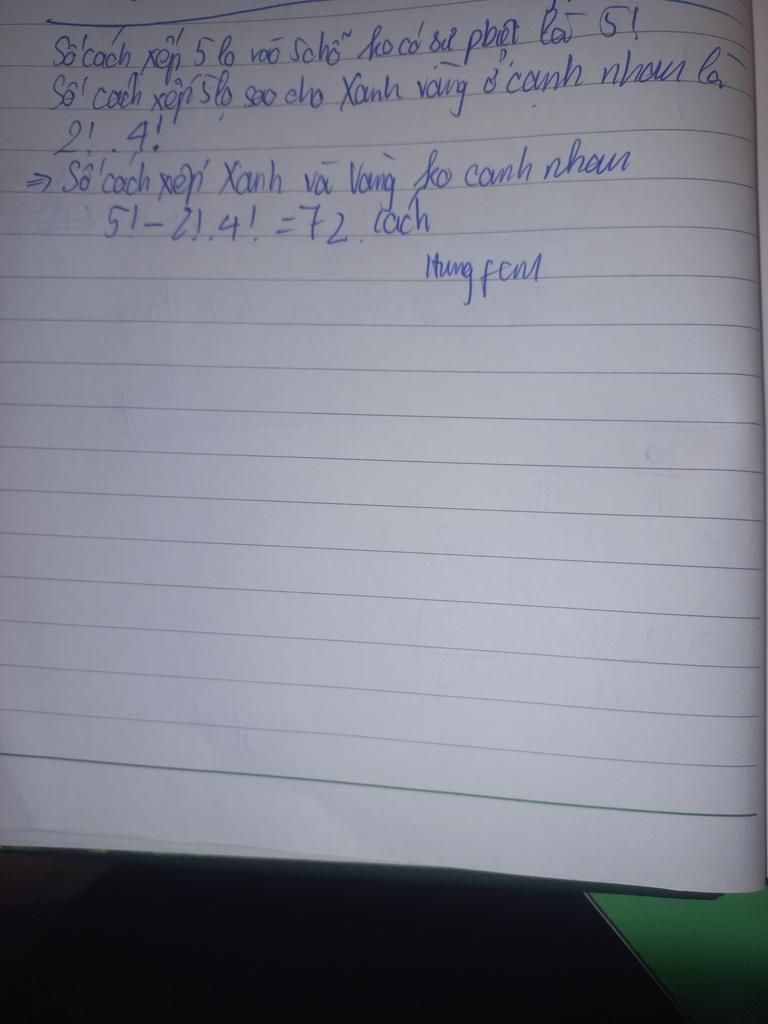 Số cách xếp 5 lọ vào 5 chỗ ko có sự phbiệt là 5!
Số cách xếp 5 lọ sao cho Xanh vàng ở cạnh nhau là
2! . 4!
⇒ Số cách xếp Xanh và Vàng ko cạnh nhau
5! - 2! . 4! = 72 cách
Hung